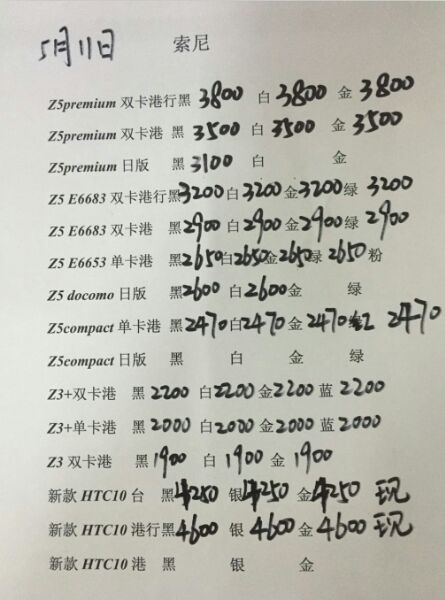 5月11日 索尼
Z5premium 双卡港行黑 3800 白 3800 金 3800
Z5premium 双卡港 黑 3500 白 3500 金 3500
Z5premium 日版 黑 3100 白 金
Z5 E6683 双卡港行黑 3200 白 3200 金 3200 绿 3200
Z5 E6683 双卡港 黑 2900 白 2900 金 2900 绿 2900
Z5 E6653 单卡港 黑 2650 白 2650 金 2650 绿 2650 粉
Z5 docomo 日版 黑 2600 白 2600 金 绿
Z5compact 单卡港 黑 2470 白 2470 金 2470 红 2470
Z5compact 日版 黑 白 金 绿
Z3+双卡港 黑 2200 白 2200 金 2200 蓝 2200
Z3+单卡港 黑 2000 白 2000 金 2000 蓝 2000
Z3 双卡港 黑 1900 白 1900 金 1900
新款 HTC10 台 黑 4250 银 4250 金 4250 现
新款 HTC10 港行黑 4600 银 4600 金 4600 现
新款 HTC10 港 黑 银 金